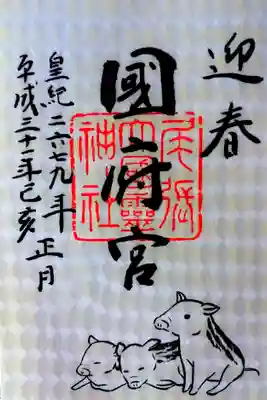 迎春
國府宮
尾張
大國靈
神社
皇紀二六七九年
平成三十一年己亥
正月